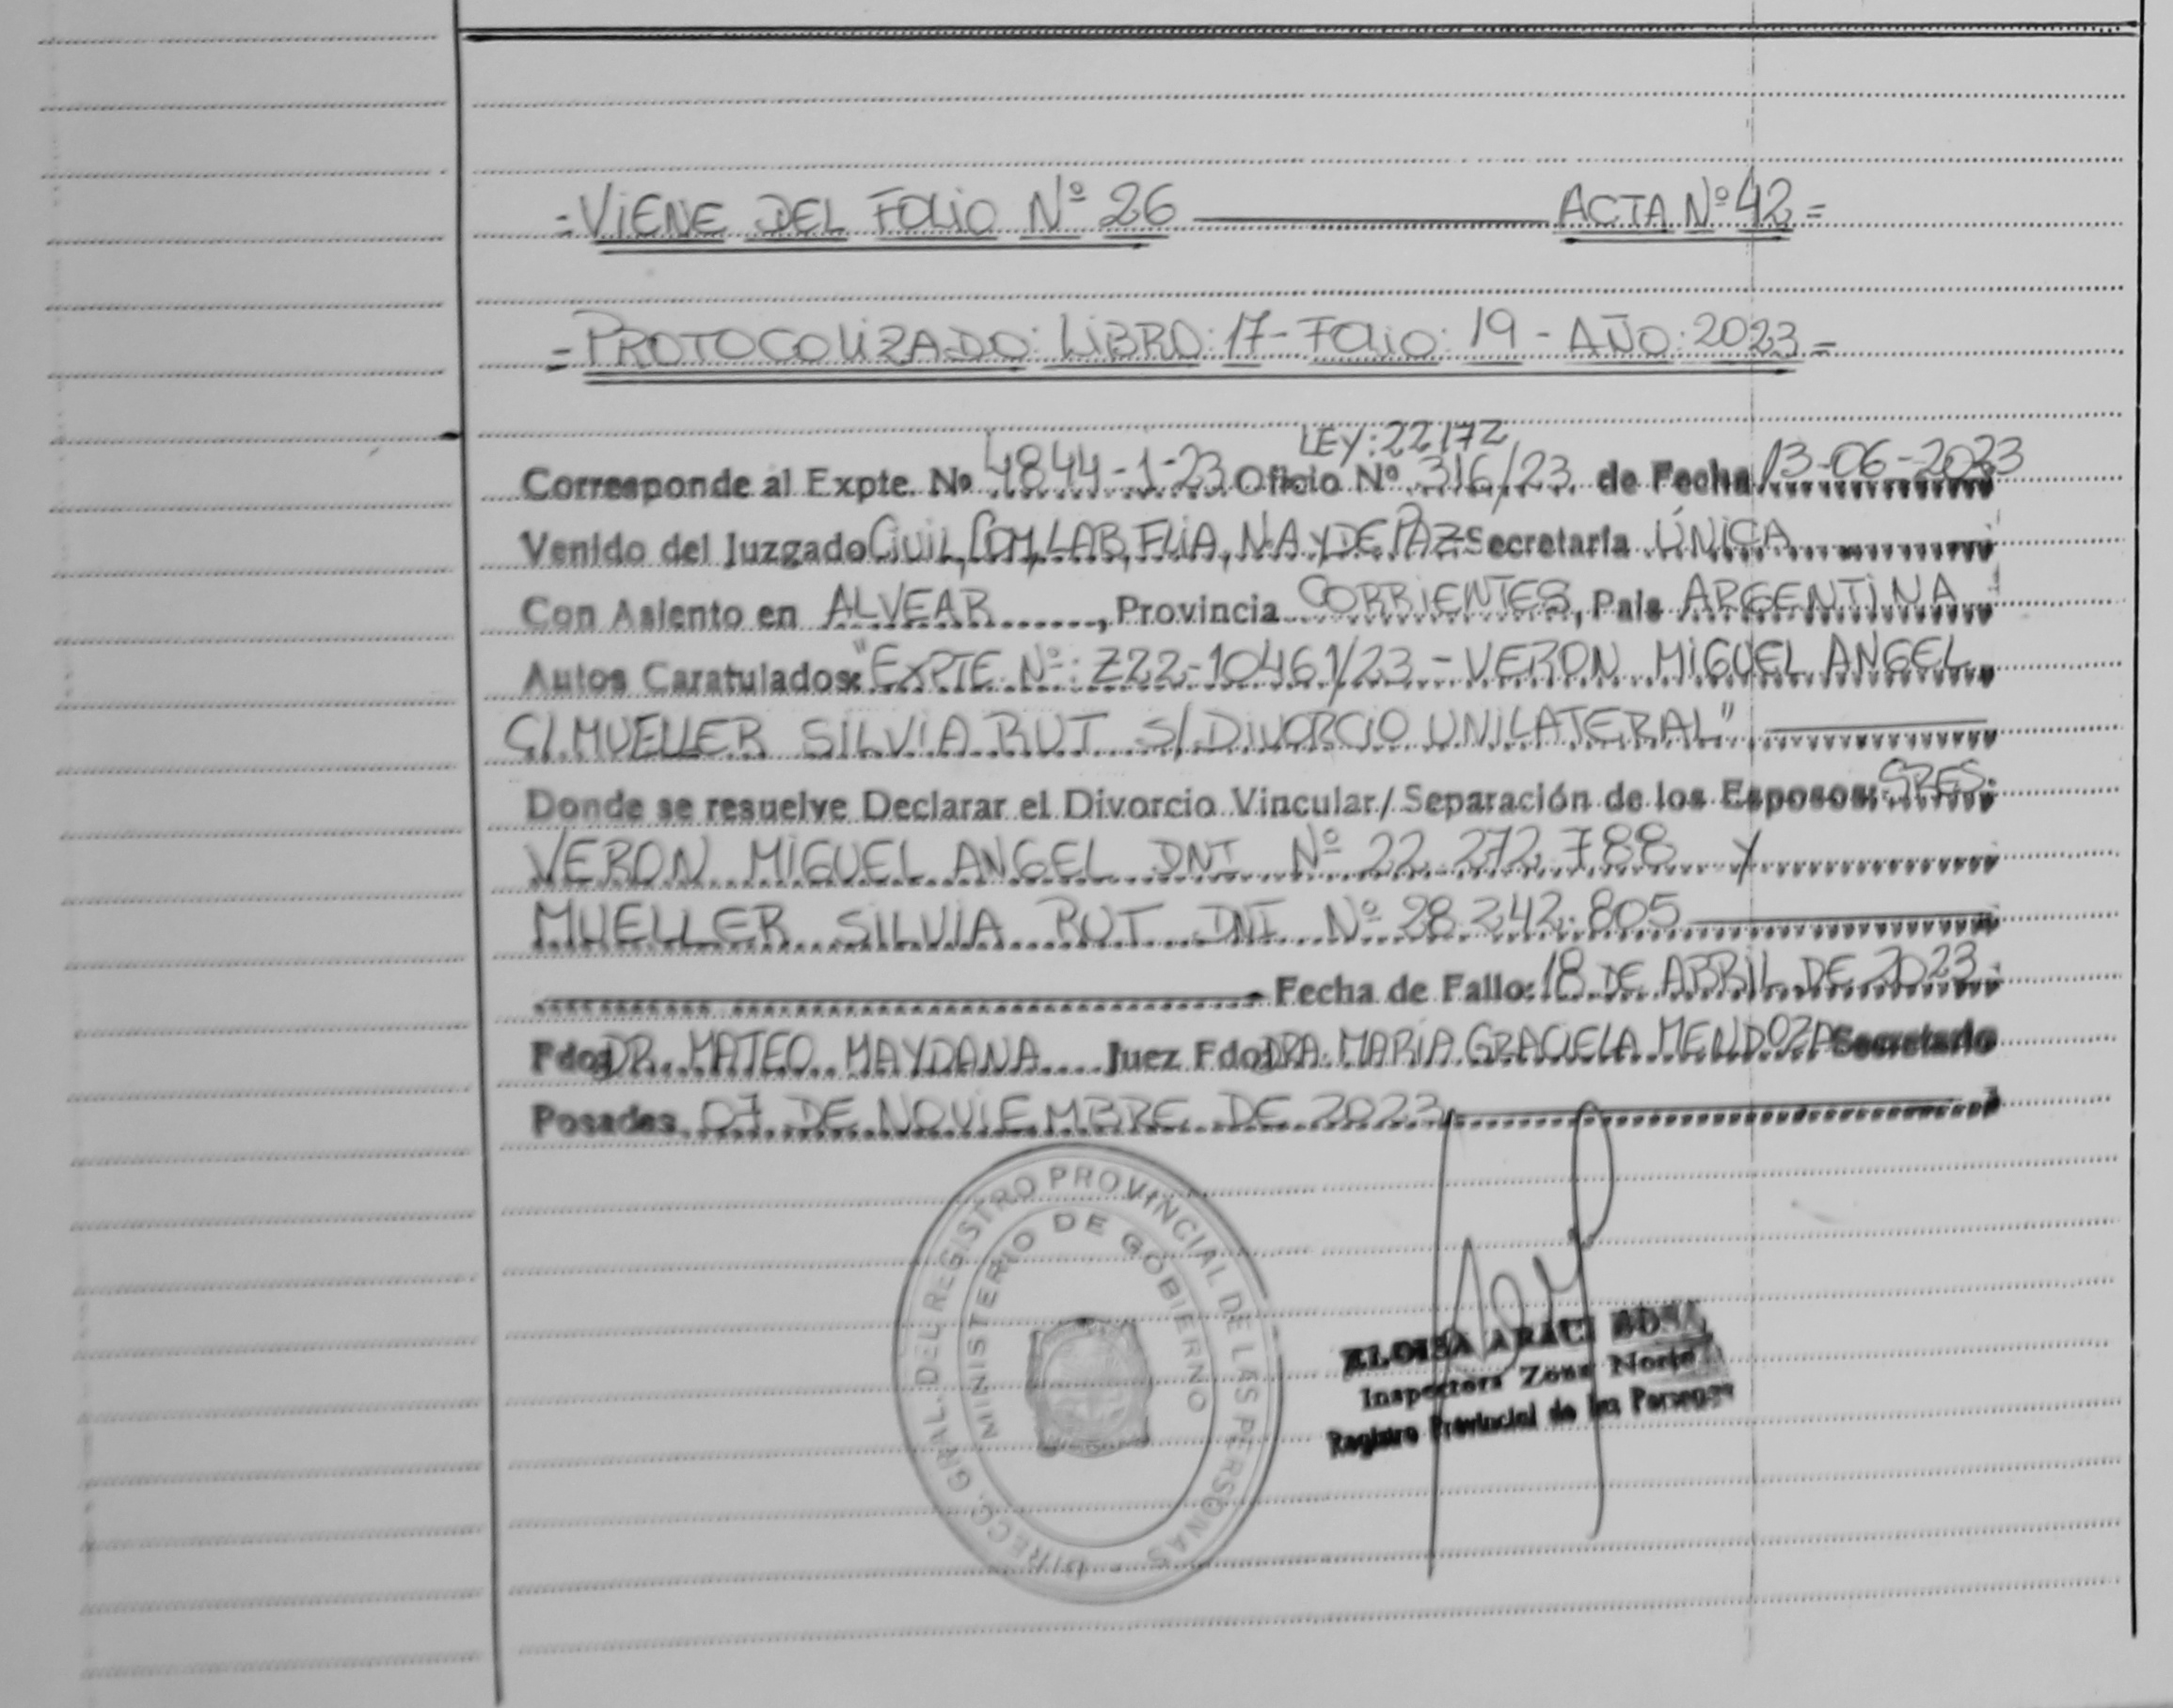 =VIENE DEL FOLIO Nº 26 ACTA Nº 42=
=PROTOCOLIZADO: LIBRO: 17- FOLIO: 19 - AÑO: 2023=
LEY: 22172
Corresponde al Expte. Nº 4844-1-23 Oficio Nº 316/23 de Fecha 13-06-2023
Venido del Juzgado CIVIL, COM, LAB, FLIA, N.A Y DE PAZ Secretaría ÚNICA
Con Asiento en ALVEAR, Provincia CORRIENTES, País ARGENTINA
Autos Caratulados: "EXPTE Nº: Z22-10461/23 - VERON MIGUEL ANGEL
C/ MUELLER SILVIA RUT S/ DIVORCIO UNILATERAL"
Donde se resuelve Declarar el Divorcio Vincular/Separación de los Esposos: SRES:
VERON MIGUEL ANGEL DNI Nº 22.272.788 Y
MUELLER SILVIA RUT DNI Nº 28.242.805
Fecha de Fallo: 18 DE ABRIL DE 2023
Fdo: DR. MATEO MAYDANA Juez Fdo: DRA. MARIA GRACIELA MENDOZA Secretario
Posadas, 07 DE NOVIEMBRE DE 2023
DIRECC. GRAL. DEL REGISTRO PROVINCIAL DE LAS PERSONAS
MINISTERIO DE GOBIERNO
ELOISA ARACI
Inspectora Zona Norte
Registro Provincial de las Personas